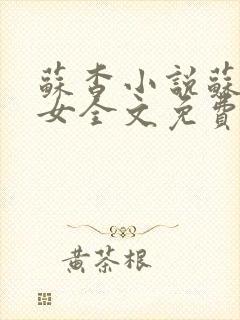 蘇杳小說蘇
女全文免費
黃茶根